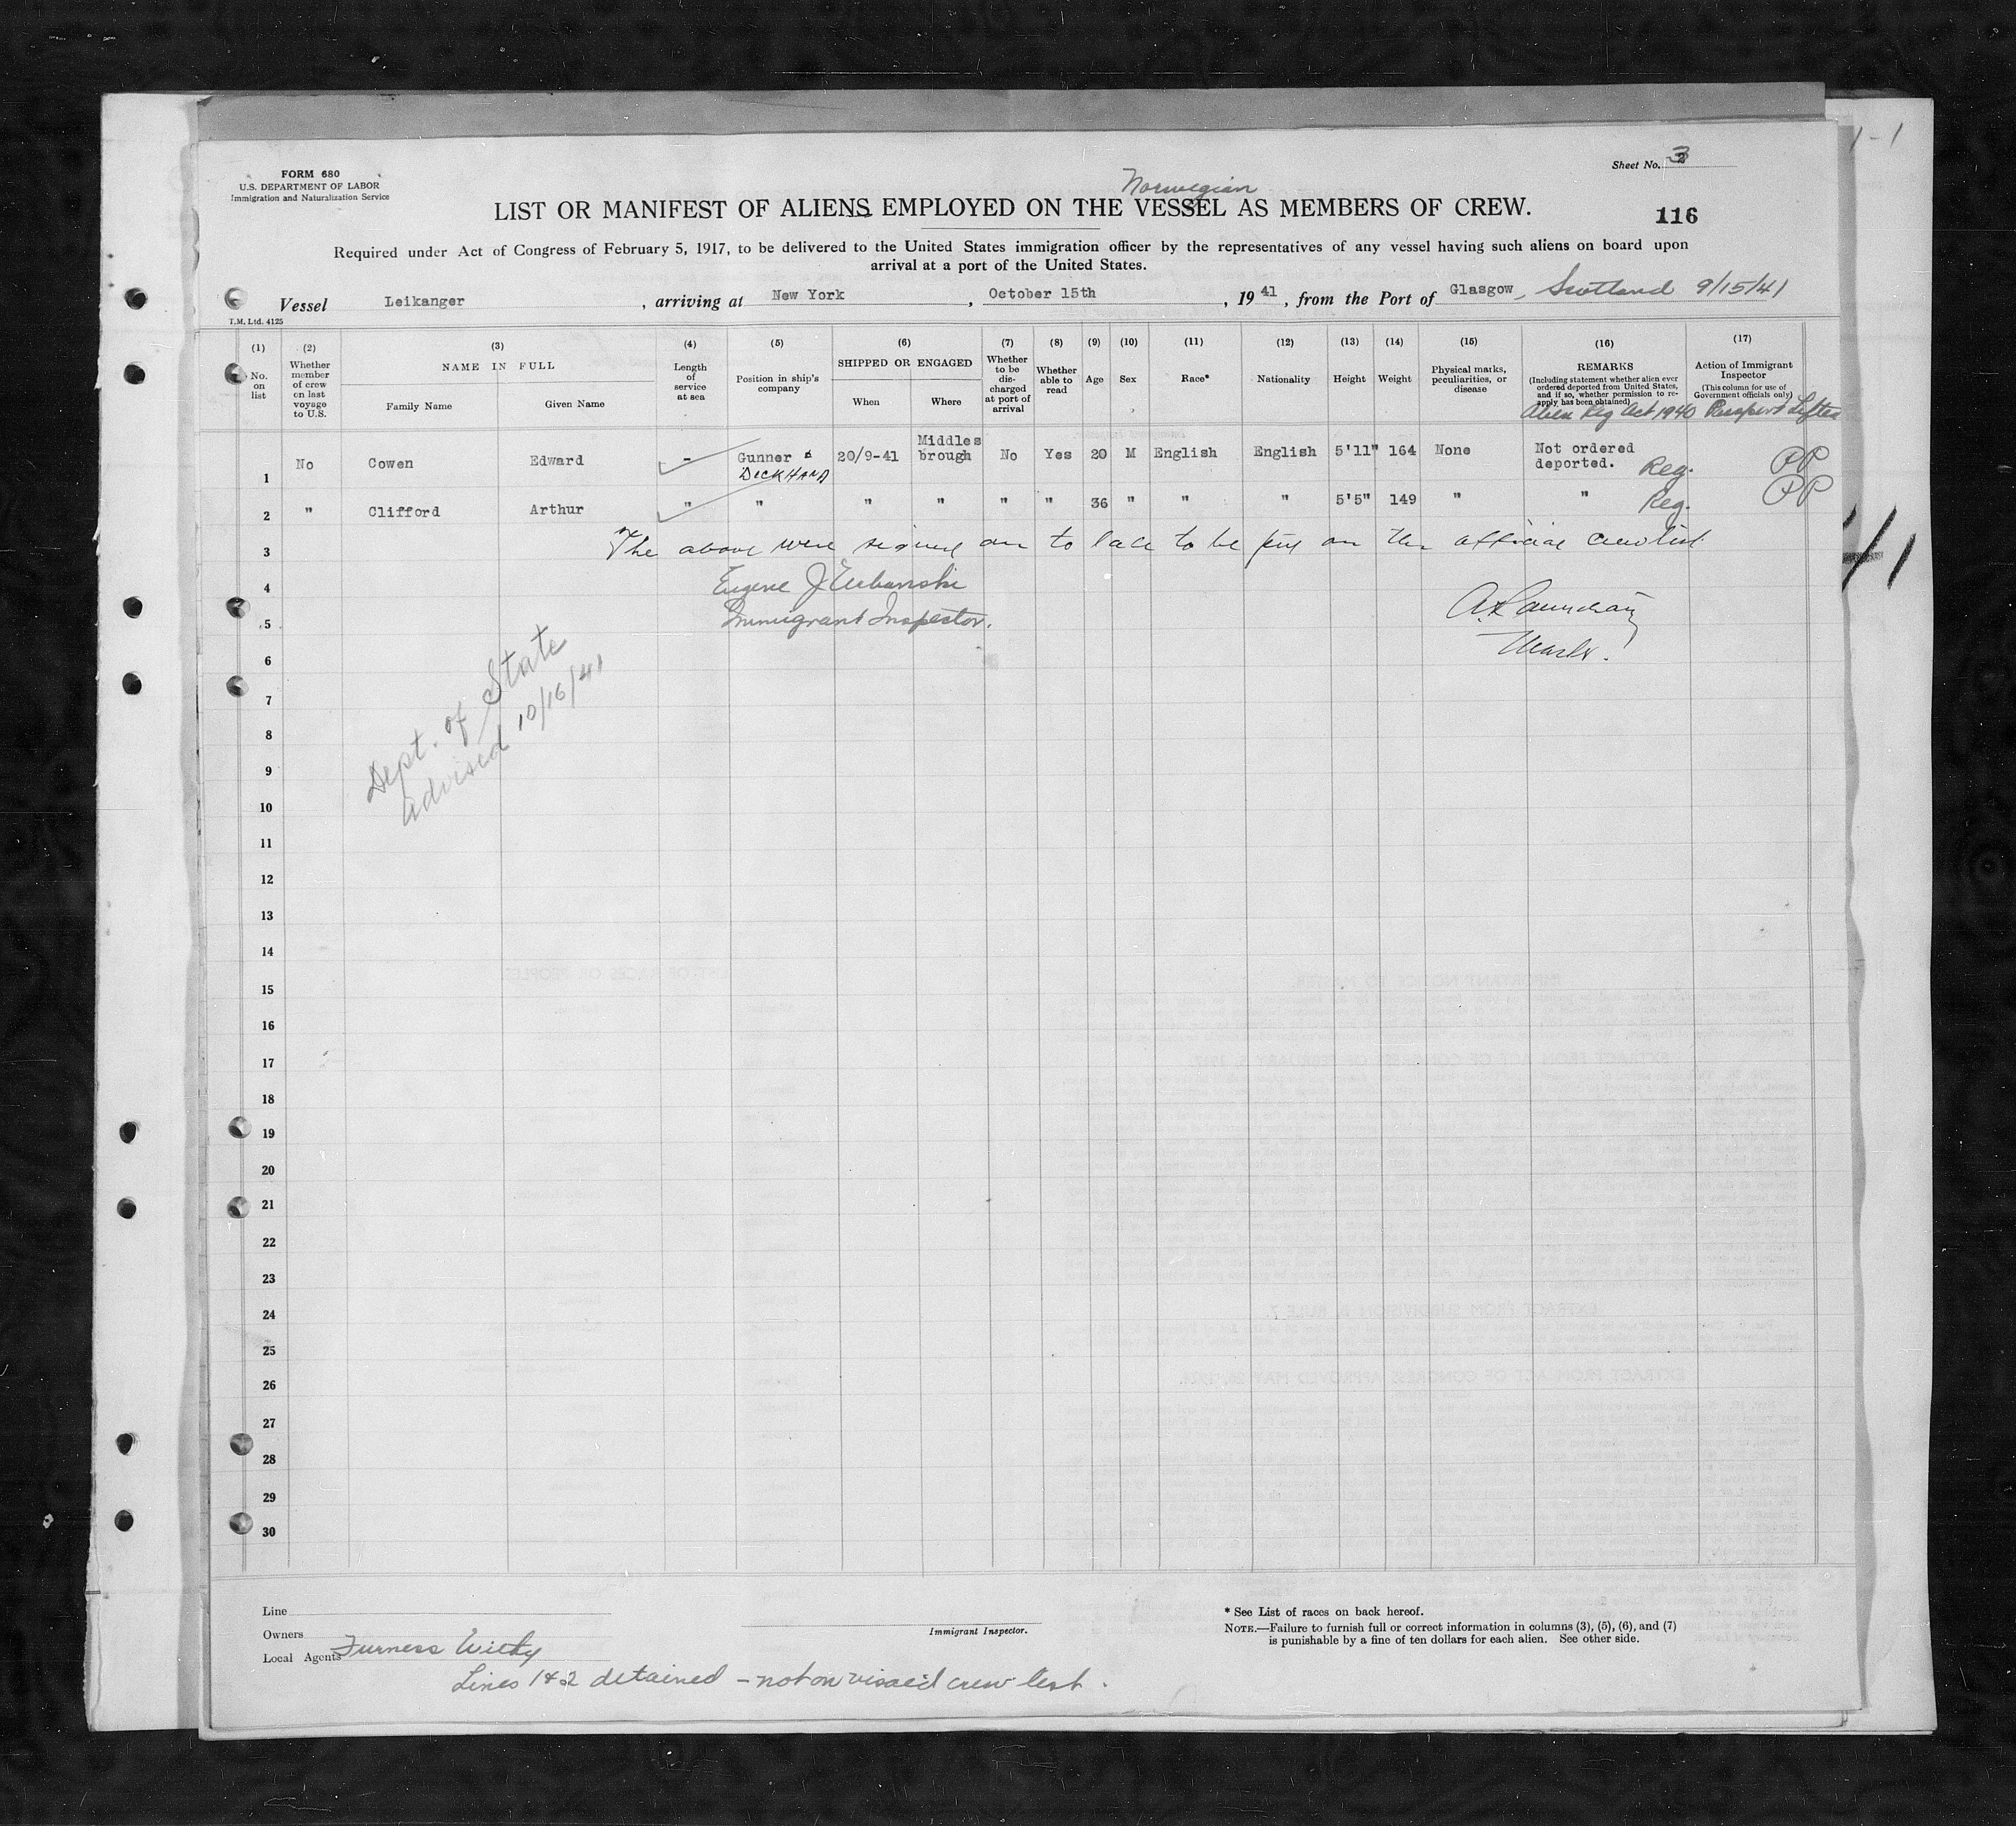 1-1
FORM 680
U.S. DEPARTMENT OF LABOR
Immigration and Naturalization Service
Sheet No. 3
Norwegian
LIST OR MANIFEST OF ALIENS EMPLOYED ON THE VESSEL AS MEMBERS OF CREW.
116
Required under Act of Congress of February 5, 1917, to be delivered to the United States immigration officer by the representatives of any vessel having such aliens on board upon
arrival at a port of the United States.
Vessel Leikanger, arriving at New York, October 15th, 1941, from the Port of Glasgow, Scotland 9/15/41
T.M. Ltd. 4125
(1) No. on list
(2) Whether member of crew on last voyage to U.S.
(3) NAME IN FULL
Family Name Given Name
(4) Length of service at sea
(5) Position in ship's company
(6) SHIPPED OR ENGAGED
When Where
(7) Whether to be discharged at port of arrival
(8) Whether able to read
(9) Age
(10) Sex
(11) Race*
(12) Nationality
(13) Height
(14) Weight
(15) Physical marks, peculiarities, or disease
(16) REMARKS
(Including statement whether alien ever ordered deported from United States, and if so, whether permission to re-apply has been obtained)
Alien Reg Act 1940
(17) Action of Immigrant Inspector
(This column for use of Government officials only)
Passport Lifted
1 No Cowen Edward - Gunner & DECKHAND 20/9-41 Middlesbrough No Yes 20 M English English 5'11" 164 None Not ordered deported. Reg. PP
2 " Clifford Arthur " " " " " " 36 " " " 5'5" 149 " " Reg. PP
3 The above were signed on to late to be put on the official crewlist.
4 Eugene J Urbanski
5 Immigrant Inspector.
Master.
41
6
7
8
9
10
Dept. of State
advised 10/16/41
11
12
13
14
15
16
17
18
19
20
21
22
23
24
25
26
27
28
29
30
Line
Owners
Local Agents Furness Withy
Immigrant Inspector.
* See List of races on back hereof.
NOTE.—Failure to furnish full or correct information in columns (3), (5), (6), and (7)
is punishable by a fine of ten dollars for each alien. See other side.
Lines 1 & 2 detained – not on visaed crew list.